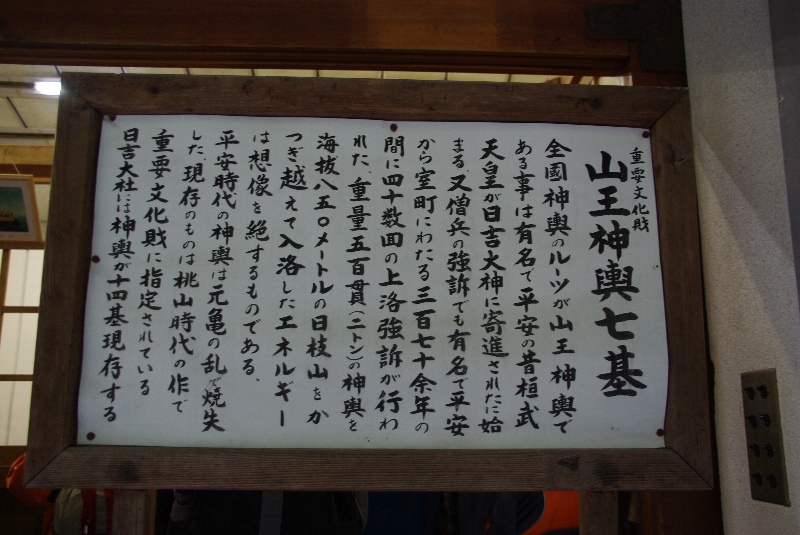 重要文化財
山王神輿七基
全國神輿のルーツが山王神輿で
ある事は有名で平安の昔桓武
天皇が日吉大神に寄進されたに始
まる又僧兵の強訴でも有名で平安
から室町にわたる三百七十余年の
間に四十数回の上洛強訴が行わ
れた、重量五百貫(二トン)の神輿を
海抜八五〇メートルの日枝山をか
つぎ越えて入洛したエネルギー
は想像を絶するものである、
平安時代の神輿は元亀の乱で焼失
した、現存のものは桃山時代の作で
重要文化財に指定されている
日吉大社には神輿が十四基現存する